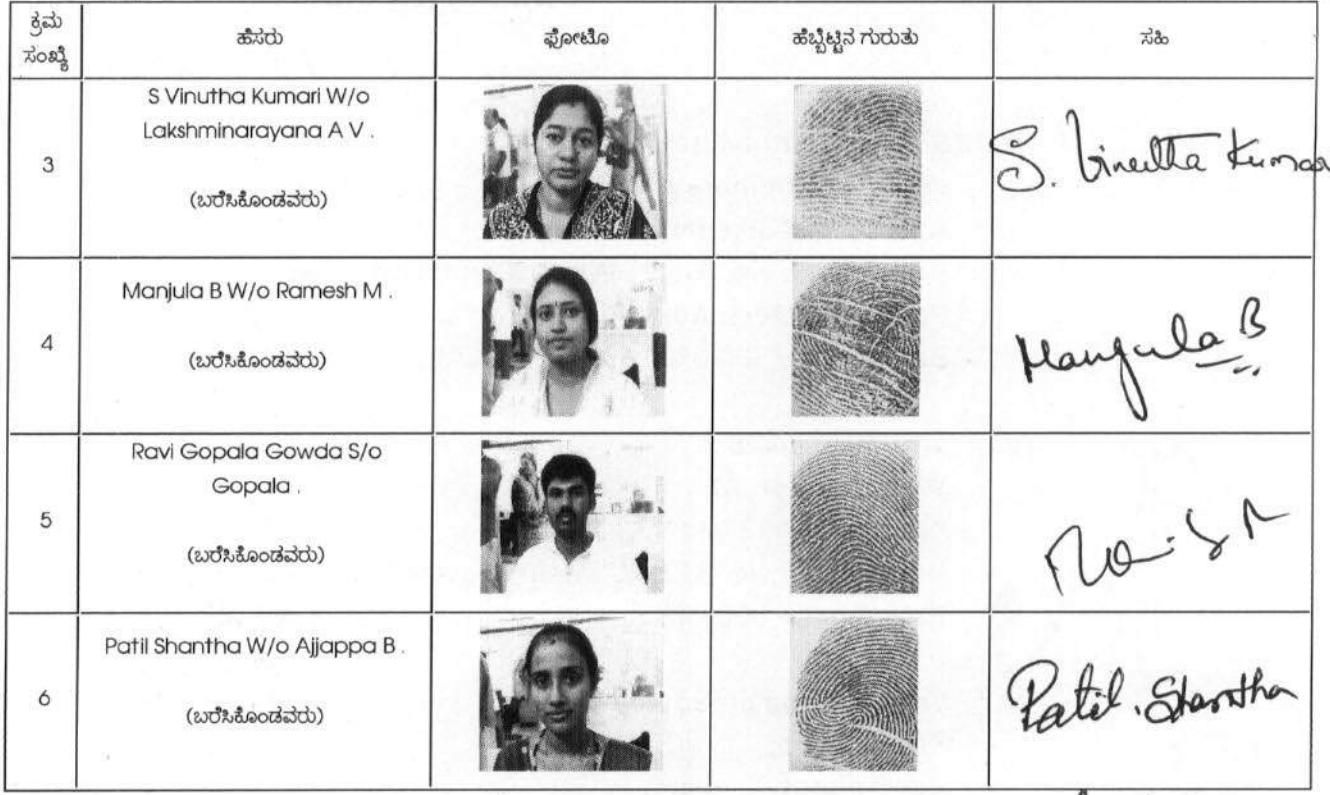 ಕ್ರಮ
ಸಂಖ್ಯೆ
ಹೆಸರು
ಫೋಟೊ
ಹೆಬ್ಬೆಟ್ಟಿನ ಗುರುತು
ಸಹಿ
3
S Vinutha Kumari W/o
Lakshminarayana A V .
(ಬರೆಸಿಕೊಂಡವರು)
S. Vinutha Kumar
4
Manjula B W/o Ramesh M .
(ಬರೆಸಿಕೊಂಡವರು)
Manjula B
5
Ravi Gopala Gowda S/o
Gopala .
(ಬರೆಸಿಕೊಂಡವರು)
6
Patil Shantha W/o Ajjappa B .
(ಬರೆಸಿಕೊಂಡವರು)
Patil. Shantha